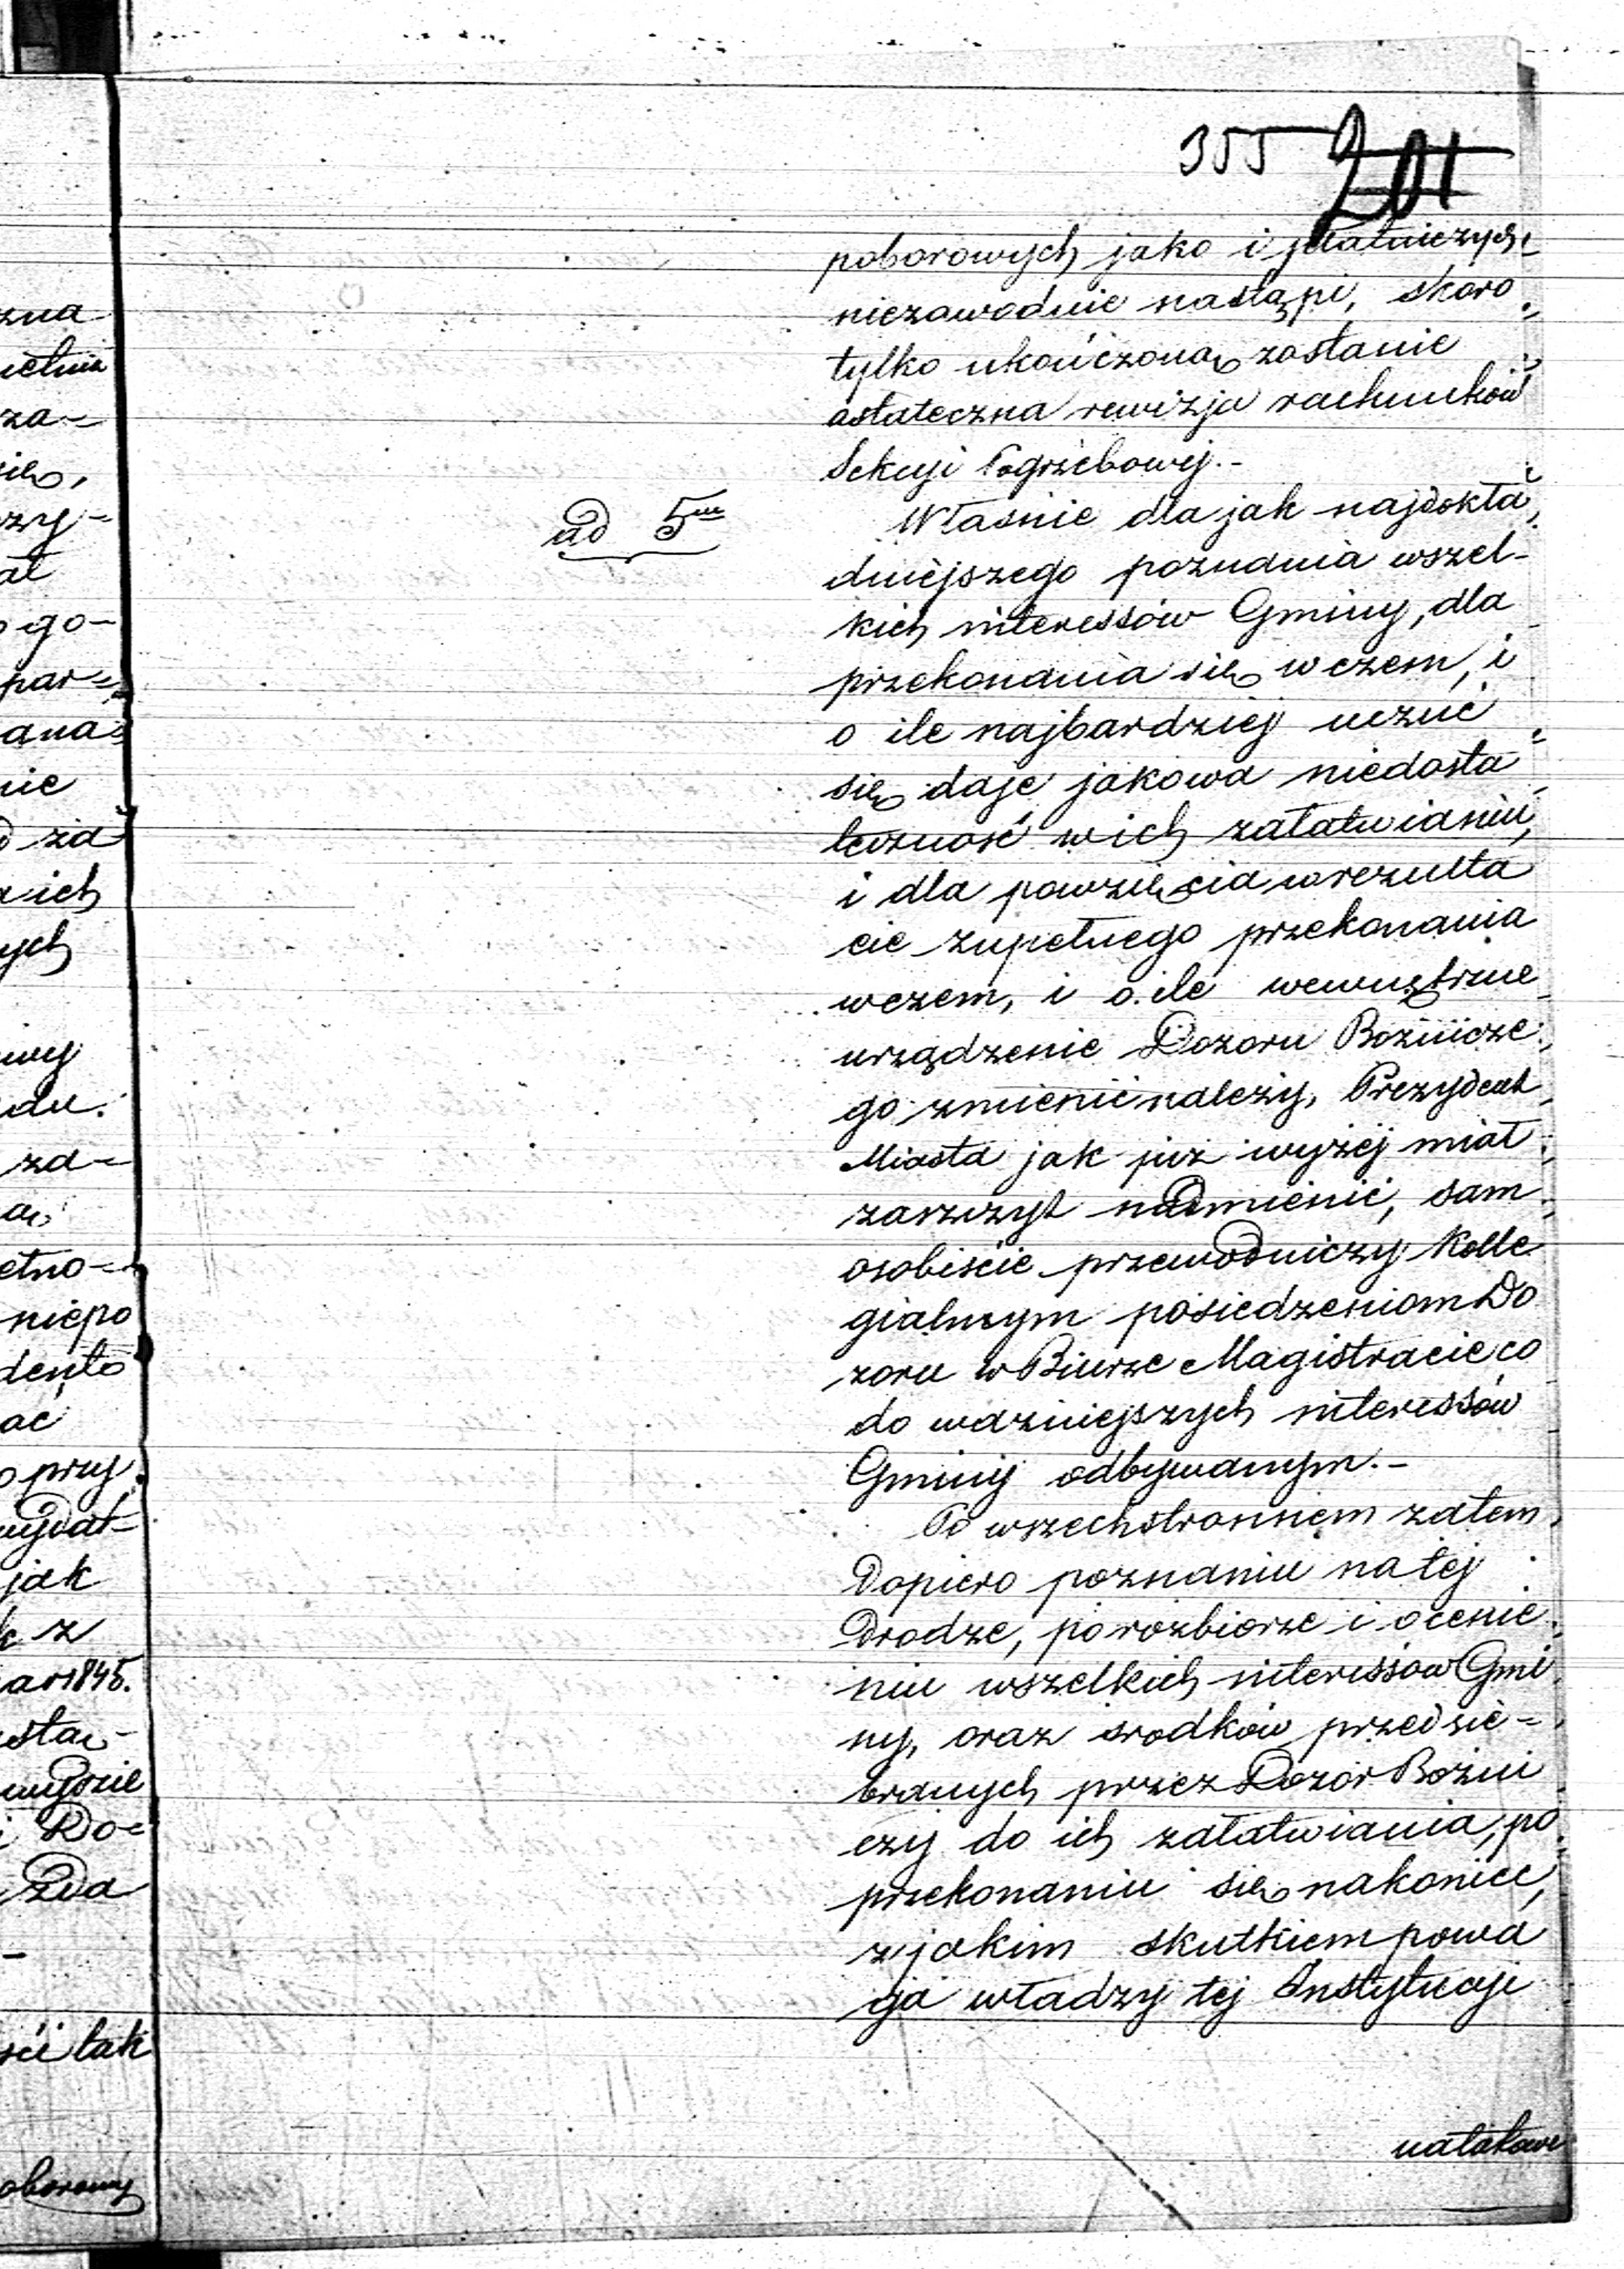 355 201
poborowych jako i płatniczych
niezawodnie nastąpi, skoro
tylko ukończoną zostanie
ostateczna rewizja rachunków
Sekcyi Pogrzebowej.-
ad 5m
Właśnie dla jak najdokła
dniejszego poznania wszel-
kich interessów Gminy, dla
przekonania się w czem, i
o ile najbardziej uczuć
się daje jakowa niedosta
teczność w ich załatwianiu,
i dla powzięcia w rezulta
cie zupełnego przekonania
w czem, i o ile wewnętrzne
urządzenie Dozoru Bożnicze
go zmienić należy, Prezydent
Miasta jak już wyżej miał
zaszczyt nadmienić, sam
osobiście przewodniczy Kolle
gialnym posiedzeniom Do
zoru w Biurze Magistracie co
do ważniejszych interessów
Gminy odbywanym.-
Po wszechstronnem zatem
Dopiero poznaniu na tej
Drodze, po rozbiorze i ocenie
niu wszelkich interessów Gmi
ny, oraz srodków przedsię=
branych przez Dozór Bożni
czy do ich załatwiania, po
przekonaniu się nakoniec,
z jakim skutkiem powa
ga władzy tej Instytucyi
zna
za-
się,
zy-
go-
par=
ana
nie
ich
ych
za-
etno-
niepo
ać
przy
jak
z
1845.
Do=
tak